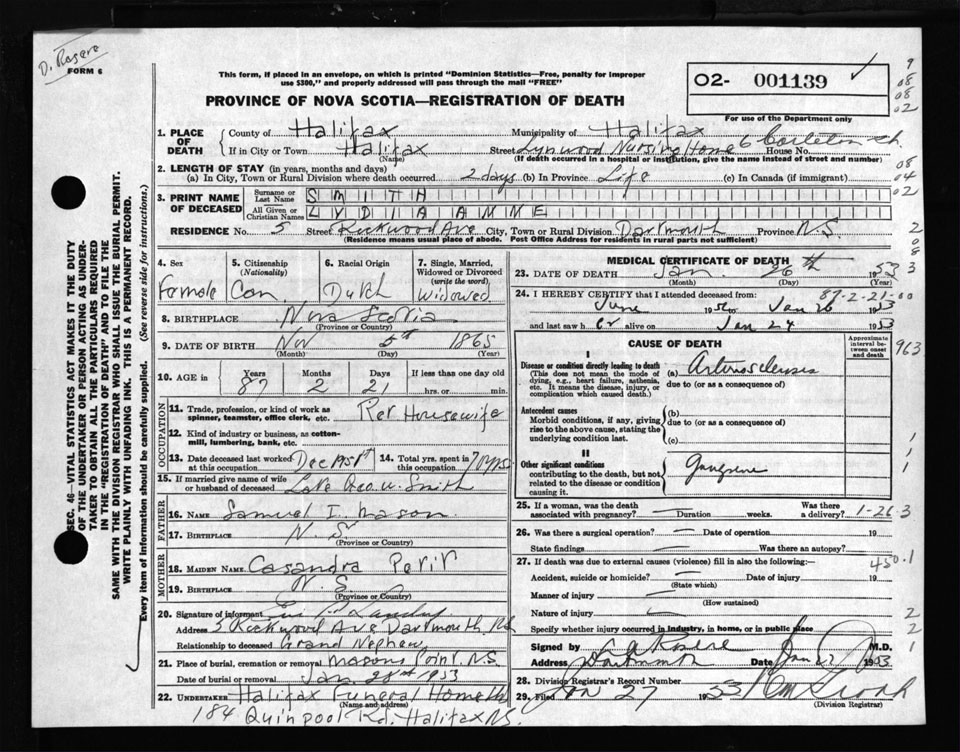 D. Rosere
FORM 6
This form, if placed in an envelope, on which is printed "Dominion Statistics—Free, penalty for improper
use $300," and properly addressed will pass through the mail "FREE"
PROVINCE OF NOVA SCOTIA—REGISTRATION OF DEATH
O2- 001139 ✓
For use of the Department only
9
08
08
02
1. PLACE OF DEATH { County of Halifax Municipality of Halifax
If in City or Town Halifax Street Lynwood Nursing Home 6 Carleton House No.
(Name) (If death occurred in a hospital or institution, give the name instead of street and number)
2. LENGTH OF STAY (in years, months and days)
(a) In City, Town or Rural Division where death occurred 2 days (b) In Province Life (c) In Canada (if immigrant)
08
04
02
3. PRINT NAME OF DECEASED { Surname or Last Name SMITH
All Given or Christian Names LYDIA ANNE
RESIDENCE No. 5 Street Rickwood Ave City, Town or Rural Division Dartmouth Province N.S.
(Residence means usual place of abode. Post Office Address for residents in rural parts not sufficient)
2
0
8
3
4. Sex Female
5. Citizenship (Nationality) Can
6. Racial Origin Dutch
7. Single, Married, Widowed or Divorced (write the word) Widowed
8. BIRTHPLACE Nova Scotia
(Province or Country)
9. DATE OF BIRTH Nov 5th 1865
(Month) (Day) (Year)
10. AGE in Years 87 Months 2 Days 21 If less than one day old
hrs. or min.
OCCUPATION
11. Trade, profession, or kind of work as spinner, teamster, office clerk, etc. Ret Housewife
12. Kind of industry or business, as cotton-mill, lumbering, bank, etc.
13. Date deceased last worked at this occupation Dec 1951 14. Total yrs. spent in this occupation 70 yrs
15. If married give name of wife or husband of deceased Late Geo. W. Smith
FATHER
16. NAME Samuel I. Mason
17. BIRTHPLACE N. S.
(Province or Country)
MOTHER
18. MAIDEN NAME Casandra
19. BIRTHPLACE N. S.
(Province or Country)
20. Signature of informant
Address 5 Rickwood Ave Dartmouth
Relationship to deceased Grand Nephew
21. Place of burial, cremation or removal Masons Point. N.S.
Date of burial or removal Jan. 28th 1953
22. UNDERTAKER Halifax Funeral Home Ltd
(Name and address)
184 Quinpool Rd. Halifax N.S.
MEDICAL CERTIFICATE OF DEATH
23. DATE OF DEATH Jan. 26th 1953
(Month) (Day)
24. I HEREBY CERTIFY that I attended deceased from: 87-2-21-00
June 19 to Jan 26 1953
and last saw her alive on Jan 24 1953
CAUSE OF DEATH
Approximate interval between onset and death
963
I
Disease or condition directly leading to death
(This does not mean the mode of dying, e.g., heart failure, asthenia, etc. It means the disease, injury, or complication which caused death.)
(a) Arteriosclerosis
due to (or as a consequence of)
Antecedent causes
Morbid conditions, if any, giving rise to the above cause, stating the underlying condition last.
(b)
due to (or as a consequence of)
(c)
II
Other significant conditions
contributing to the death, but not related to the disease or condition causing it.
Gangrene
1
1
1
25. If a woman, was the death associated with pregnancy? — Duration weeks. Was there a delivery? 1-26-3
26. Was there a surgical operation? — Date of operation 19
State findings — Was there an autopsy?
27. If death was due to external causes (violence) fill in also the following: 450.1
Accident, suicide or homicide? — Date of injury 19
(State which)
Manner of injury —
(How sustained)
Nature of injury — 2
Specify whether injury occurred in industry, in home, or in public place 2
Signed by Rosere M.D. 1
Address Dartmouth Date Jan 27 1953
28. Division Registrar's Record Number
29. Filed Jan 27 1953
(Division Registrar)
SEC. 46—VITAL STATISTICS ACT MAKES IT THE DUTY
OF THE UNDERTAKER OR PERSON ACTING AS UNDER-
TAKER TO OBTAIN ALL THE PARTICULARS REQUIRED
IN THE "REGISTRATION OF DEATH" AND TO FILE THE
SAME WITH THE DIVISION REGISTRAR WHO SHALL ISSUE THE BURIAL PERMIT.
WRITE PLAINLY WITH UNFADING INK. THIS IS A PERMANENT RECORD.
Every item of information should be carefully supplied. (See reverse side for instructions.)